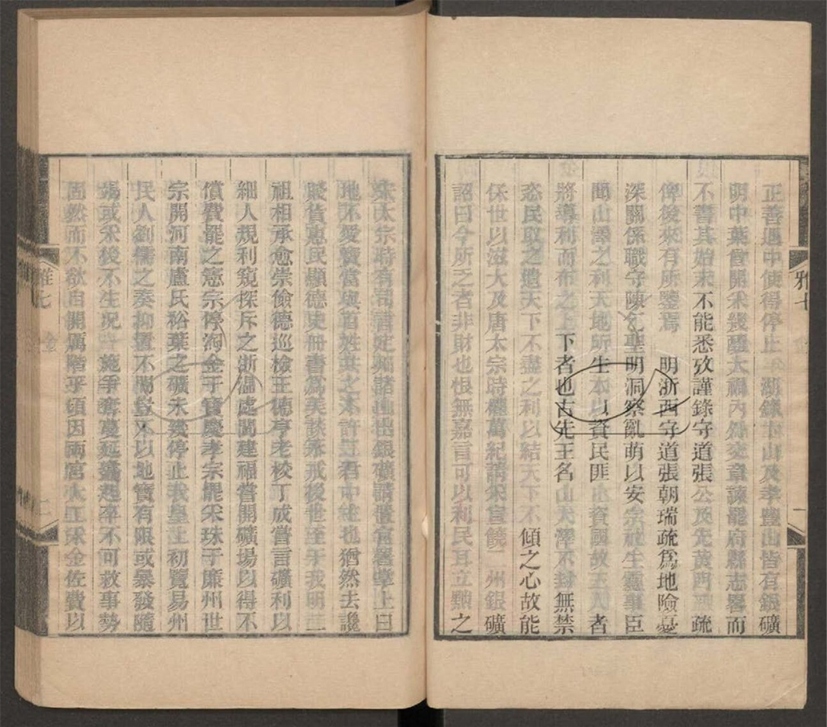 正善過中使得停止　湖錄卞山及孝豐山皆有銀礦
明中葉曾開采幾釀大禍內外交章諫罷府縣志畧而
不書其始末不能悉攷謹錄守道張公及先黃門　疏
俾後來有所鑒焉　明浙西守道張朝瑞疏爲地險憂
深關係職守陳乞聖明洞察亂萌以安宗社生靈事臣
聞山澤之利天地所生本以資民匪　資國故王　者
將導利而布之上下者也古先王名山大澤不封無禁
恣民取之遺天下不盡之利以結天下不　傾之心故能
保世以滋大及唐太宗時權萬紀請采宣饒二州銀礦
詔曰今所乏者非財也恨無嘉言可以利民耳立黜之
宋太宗時有司言定州諸山出銀礦請置官署掌上曰
地不愛寶當與百姓共之不許　君中雄也猶然去讒
賤貨惠民顯德史冊書爲美談　戒後世至于我明二
祖相承愈崇儉德巡檢王德亨老校丁成嘗言礦利以
細人規利窺探斥之浙溫處閩建福嘗開礦場以得不
償費罷之憲宗停淘金于寶慶孝宗罷采珠于廉州世
宗開河南盧氏峪葉之礦未幾停止我皇上初覽易州
民人劉儒之奏抑置不聞豈　以地寶有限或暴發隨
竭或采後不生況一施爭奪蔓延蠭起卒不可救事勢
固然而不欲自開厲階乎頃因兩宮大工採金佐費以
雅七
一
雅七
二